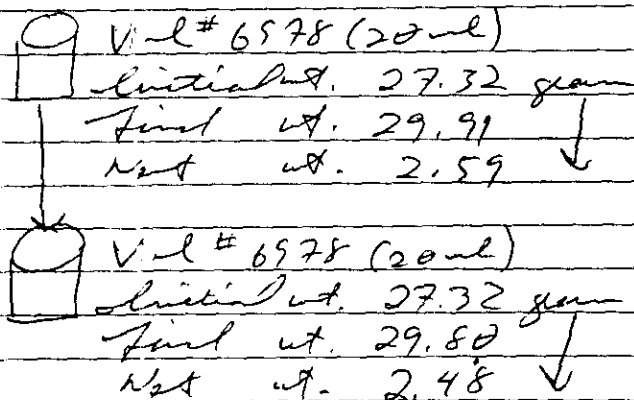 Vial # 6978 (20 ml)
Initial wt. 27.32 gram
Final wt. 29.91
Net wt. 2.59
Vial # 6978 (20 ml)
Initial wt. 27.32 gram
Final wt. 29.80
Net wt. 2.48